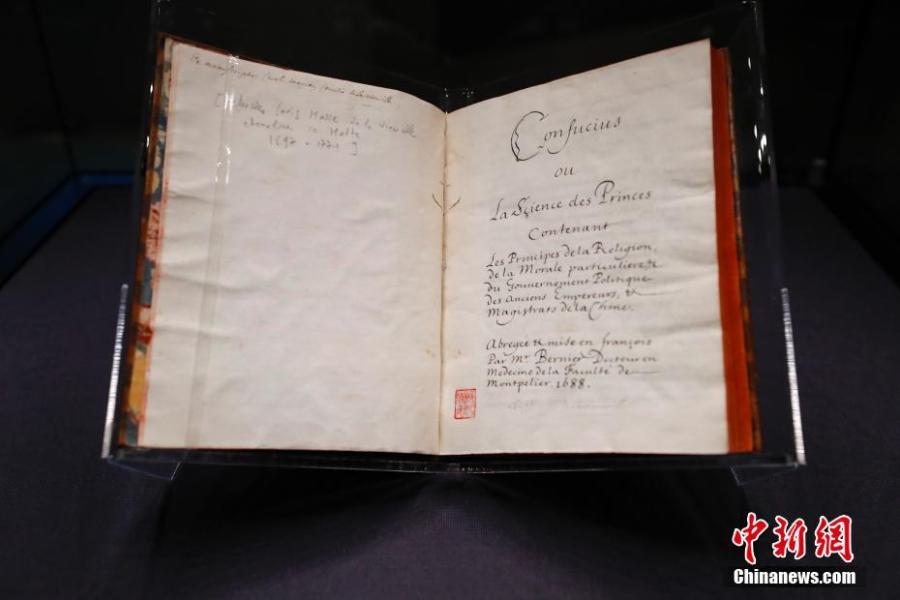 Ce manuscrit
Malte de la Vieuville
chevalier de Malte
1697 - 1771 ]
Confucius
ou
La Sçience des Princes
Contenant
Les Principes de la Religion,
de la Morale particuliere, &
du Gouvernement Politique
des Anciens Empereurs, &
Magistrats de la Chine.
Abregée & mise en françois
Par Mr. Bernier Docteur en
Medecine de la Faculté de
Montpelier. 1688.
中新网
Chinanews.com